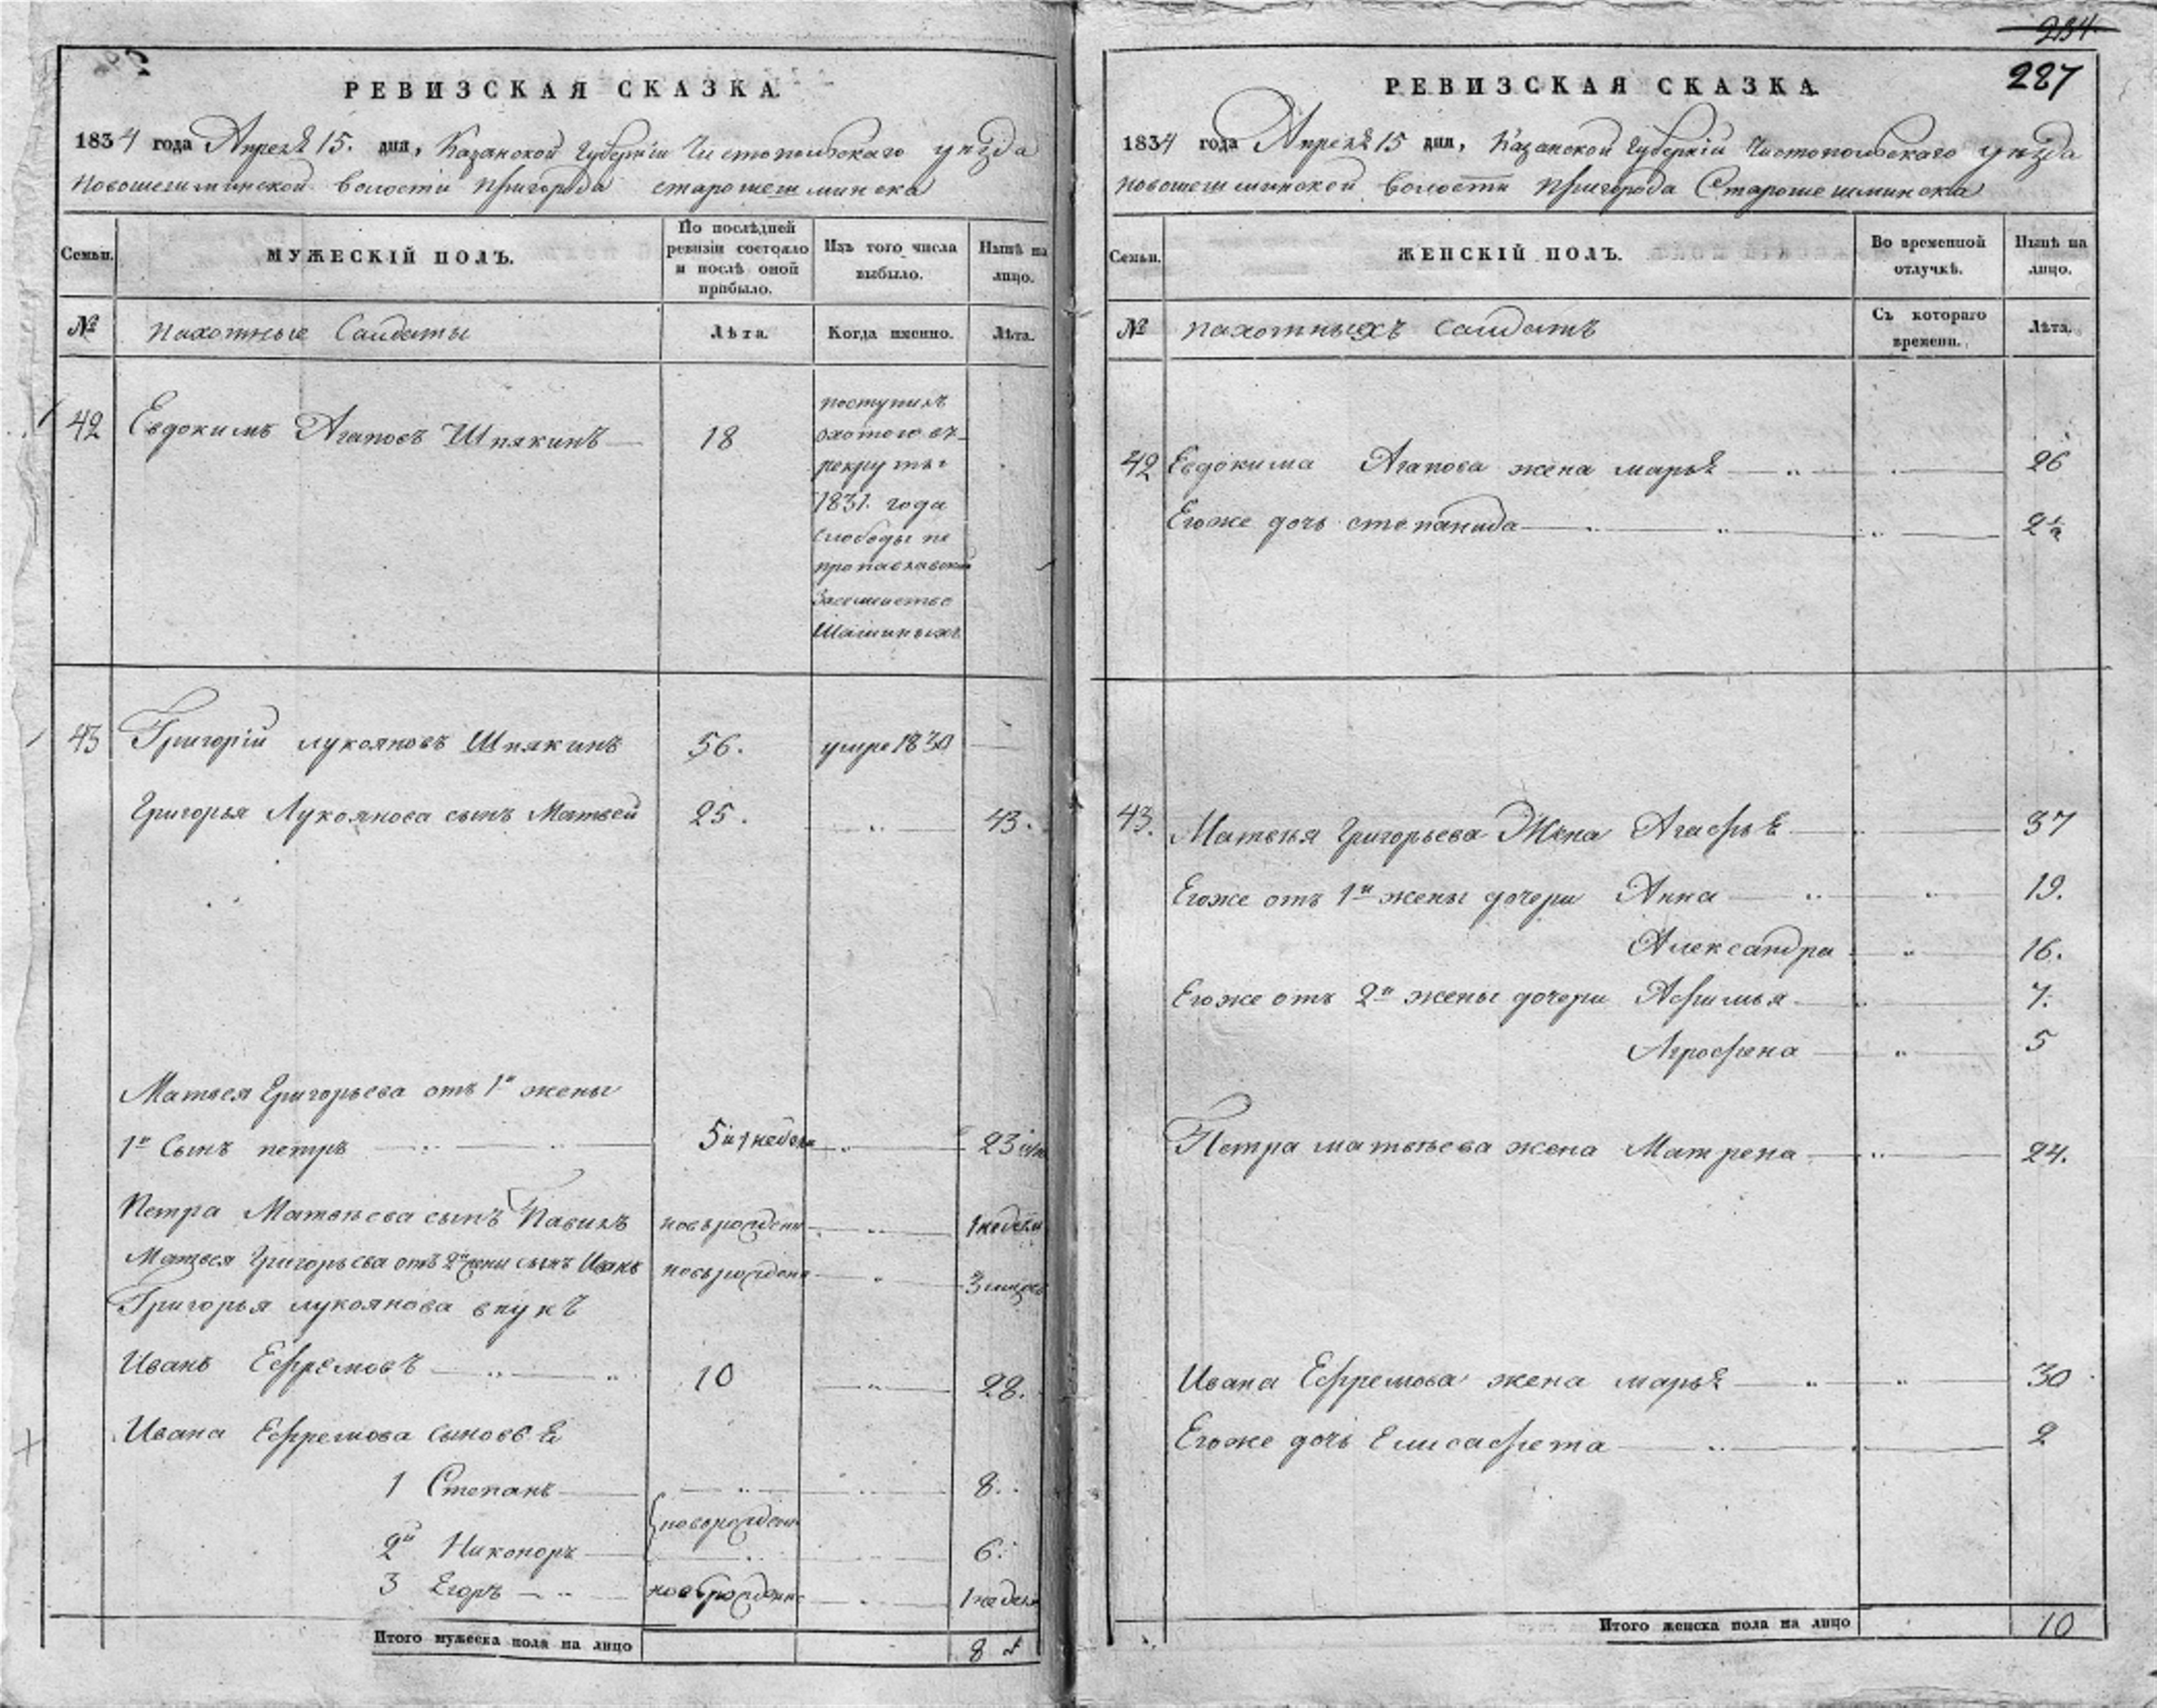 РЕВИЗСКАЯ СКАЗКА.
1834 года Апреля 15. дня, Казанской Губернии Чистопольского уезда
Новошешминской волости Пригорода старошешминска
Семьи.
МУЖЕСКІЙ ПОЛЪ.
По послѣдней ревизіи состояло и послѣ оной прибыло.
Изъ того числа выбыло.
Нынѣ на лицо.
№
пахотные Солдаты
Лѣта.
Когда именно.
Лѣта.
42 Евдокимъ Агаповъ Шпякинъ 18
поступилъ
охотою въ
рекруты
1831. года
слободы пе
тропавловской
Шашиныхъ
43 Григорій лукояновъ Шпякинъ 56. умре 1830
Григорья Лукоянова сынъ Матвей 25. 43.
Матвея Григорьева отъ 1й жены
1й Сынъ петръ 5 и 1 недели 23
Петра Матвѣева сынъ Павилъ новърожденъ 1 недели
Матвея Григорьева отъ 2й жены сынъ Иванъ новърожденъ 3
Григорья лукоянова внукъ
Иванъ Ефремовъ 10 28.
Ивана Ефремова сыновья
1 Степанъ 8.
новорожден
2й Никоноръ 6.
3 Егоръ новърожденъ 1 недели
Итого мужеска пола на лицо 8
234
227
РЕВИЗСКАЯ СКАЗКА
1834 года Апреля 15 дня, Казанской Губерніи Чистопольского уезда
Новошешминской волости Пригорода Старошешминска
Семьи.
ЖЕНСКІЙ ПОЛЪ.
Во временной отлучкѣ.
Нынѣ на лицо.
№
пахотныхъ солдатъ
Съ котораго времени.
Лѣта.
42 Евдокима Агапова жена марья 26
Егоже дочь степанида 2½
43. Матвѣя Григорьева Жена Агафья 37
Егоже отъ 1й жены дочери Анна 19.
Александра 16.
Егоже отъ 2й жены дочери Афимья 7.
Агрофена 5
Петра матвѣева жена Матрена 24.
Ивана Ефремова жена марья 30
Егоже дочь Елисафета 2
Итого женска пола на лицо 10